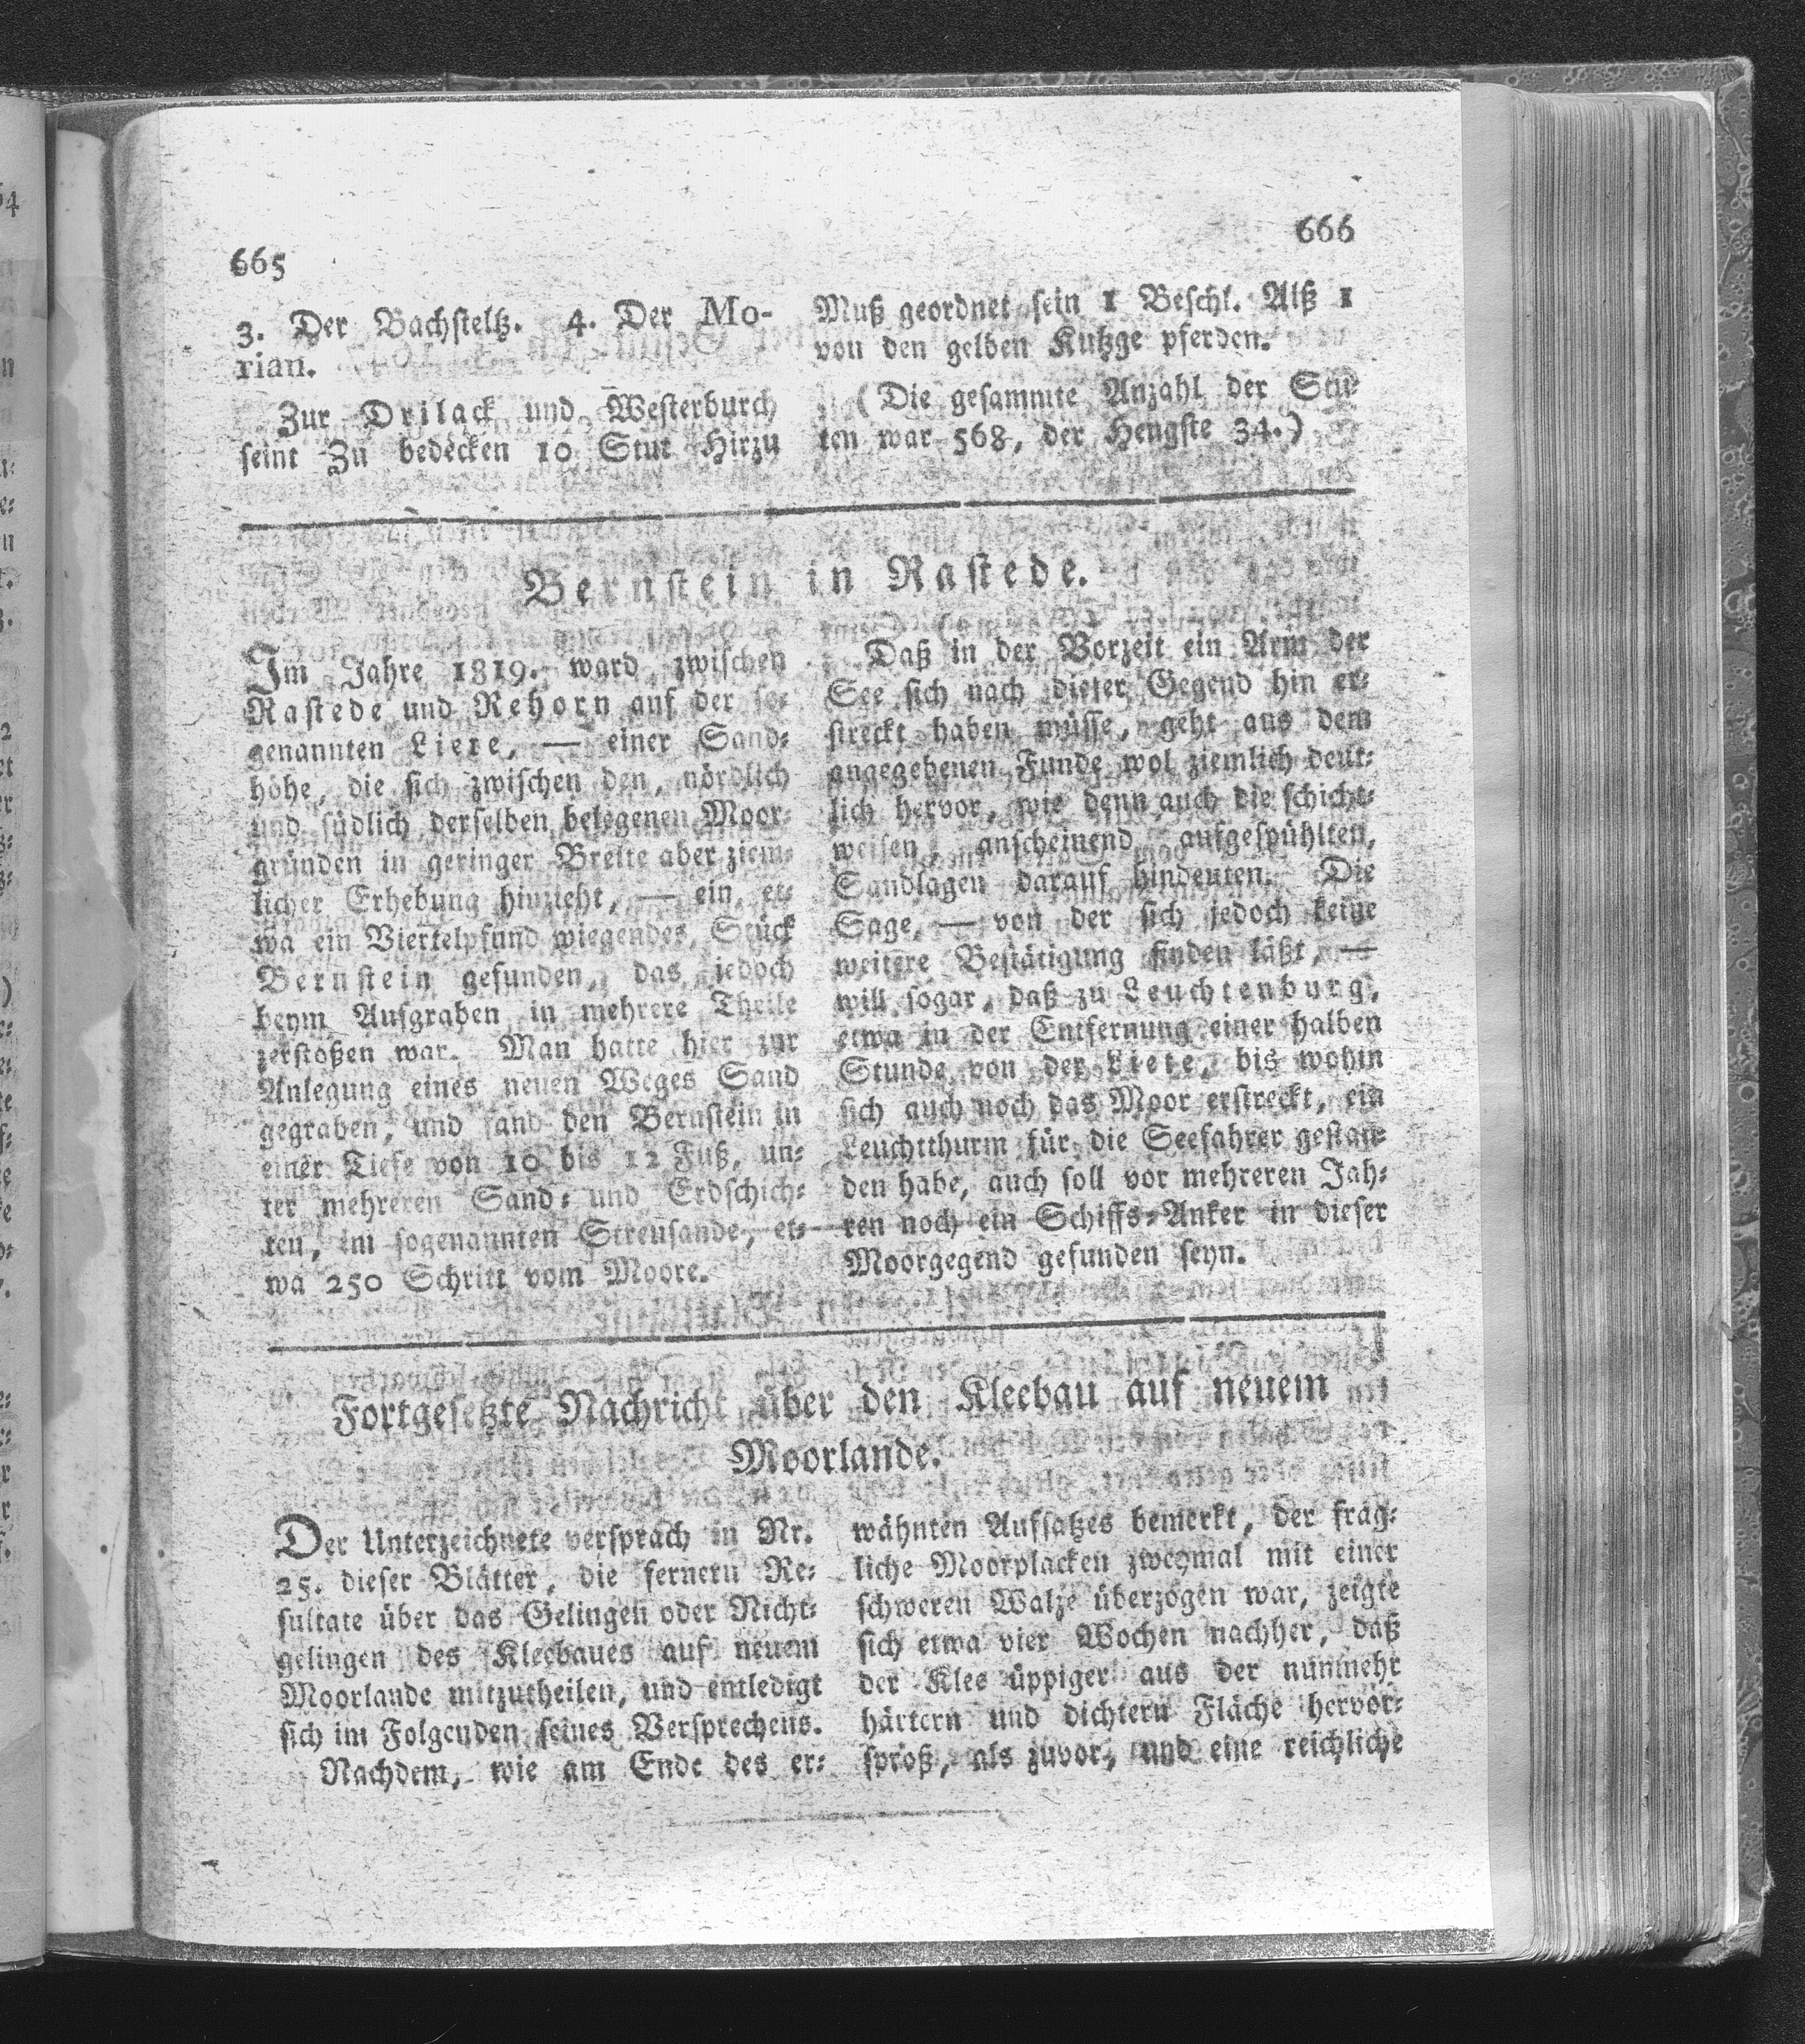 665
3. Der Bachsteltz. 4. Der Mo-
rian.
Zur Drilack und Westerburch
seint Zu bedecken 10 Stut Hirzu
666
Muß geordnet sein 1 Beschl. Alß 1
von den gelben Kutzge pferden.
(Die gesammte Anzahl der Stu-
ten war 568, der Hengste 34.)
Bernstein in Rastede.
Im Jahre 1819. ward zwischen
Rastede und Rehorn auf der so-
genannten Liete, — einer Sand-
höhe, die sich zwischen den, nördlich
und südlich derselben belegenen Moor-
gründen in geringer Breite aber ziem-
licher Erhebung hinzieht, — ein, et-
wa ein Viertelpfund wiegendes, Stück
Bernstein gefunden, das jedoch
beym Aufgraben in mehrere Theile
zerstoßen war. Man hatte hier zur
Anlegung eines neuen Weges Sand
gegraben, und fand den Bernstein in
einer Tiefe von 10 bis 12 Fuß, un-
ter mehreren Sand- und Erdschich-
ten, im sogenannten Streusande, et-
wa 250 Schritt vom Moore.
Daß in der Vorzeit ein Arm der
See sich nach dieser Gegend hin er-
streckt haben müsse, geht aus dem
angegebenen Funde wol ziemlich deut-
lich hervor, wie denn auch die schicht-
weisen, anscheinend aufgespühlten,
Sandlagen darauf hindeuten. Die
Sage, — von der sich jedoch keine
weitere Bestätigung finden läßt, —
will sogar, daß zu Leuchtenburg,
etwa in der Entfernung einer halben
Stunde von der Liete, bis wohin
sich auch noch das Moor erstreckt, ein
Leuchtthurm für die Seefahrer gestan-
den habe, auch soll vor mehreren Jah-
ren noch ein Schiffs-Anker in dieser
Moorgegend gefunden seyn.
Fortgesetzte Nachricht über den Kleebau auf neuem
Moorlande.
Der Unterzeichnete versprach in Nr.
25. dieser Blätter, die fernern Re-
sultate über das Gelingen oder Nicht-
gelingen des Kleebaues auf neuem
Moorlande mitzutheilen, und entledigt
sich im Folgenden seines Versprechens.
Nachdem, wie am Ende des er-
wähnten Aufsatzes bemerkt, der frag-
liche Moorplacken zweymal mit einer
schweren Walze überzogen war, zeigte
sich etwa vier Wochen nachher, daß
der Klee üppiger aus der nunmehr
härtern und dichtern Fläche hervor-
sproß, als zuvor, und eine reichliche